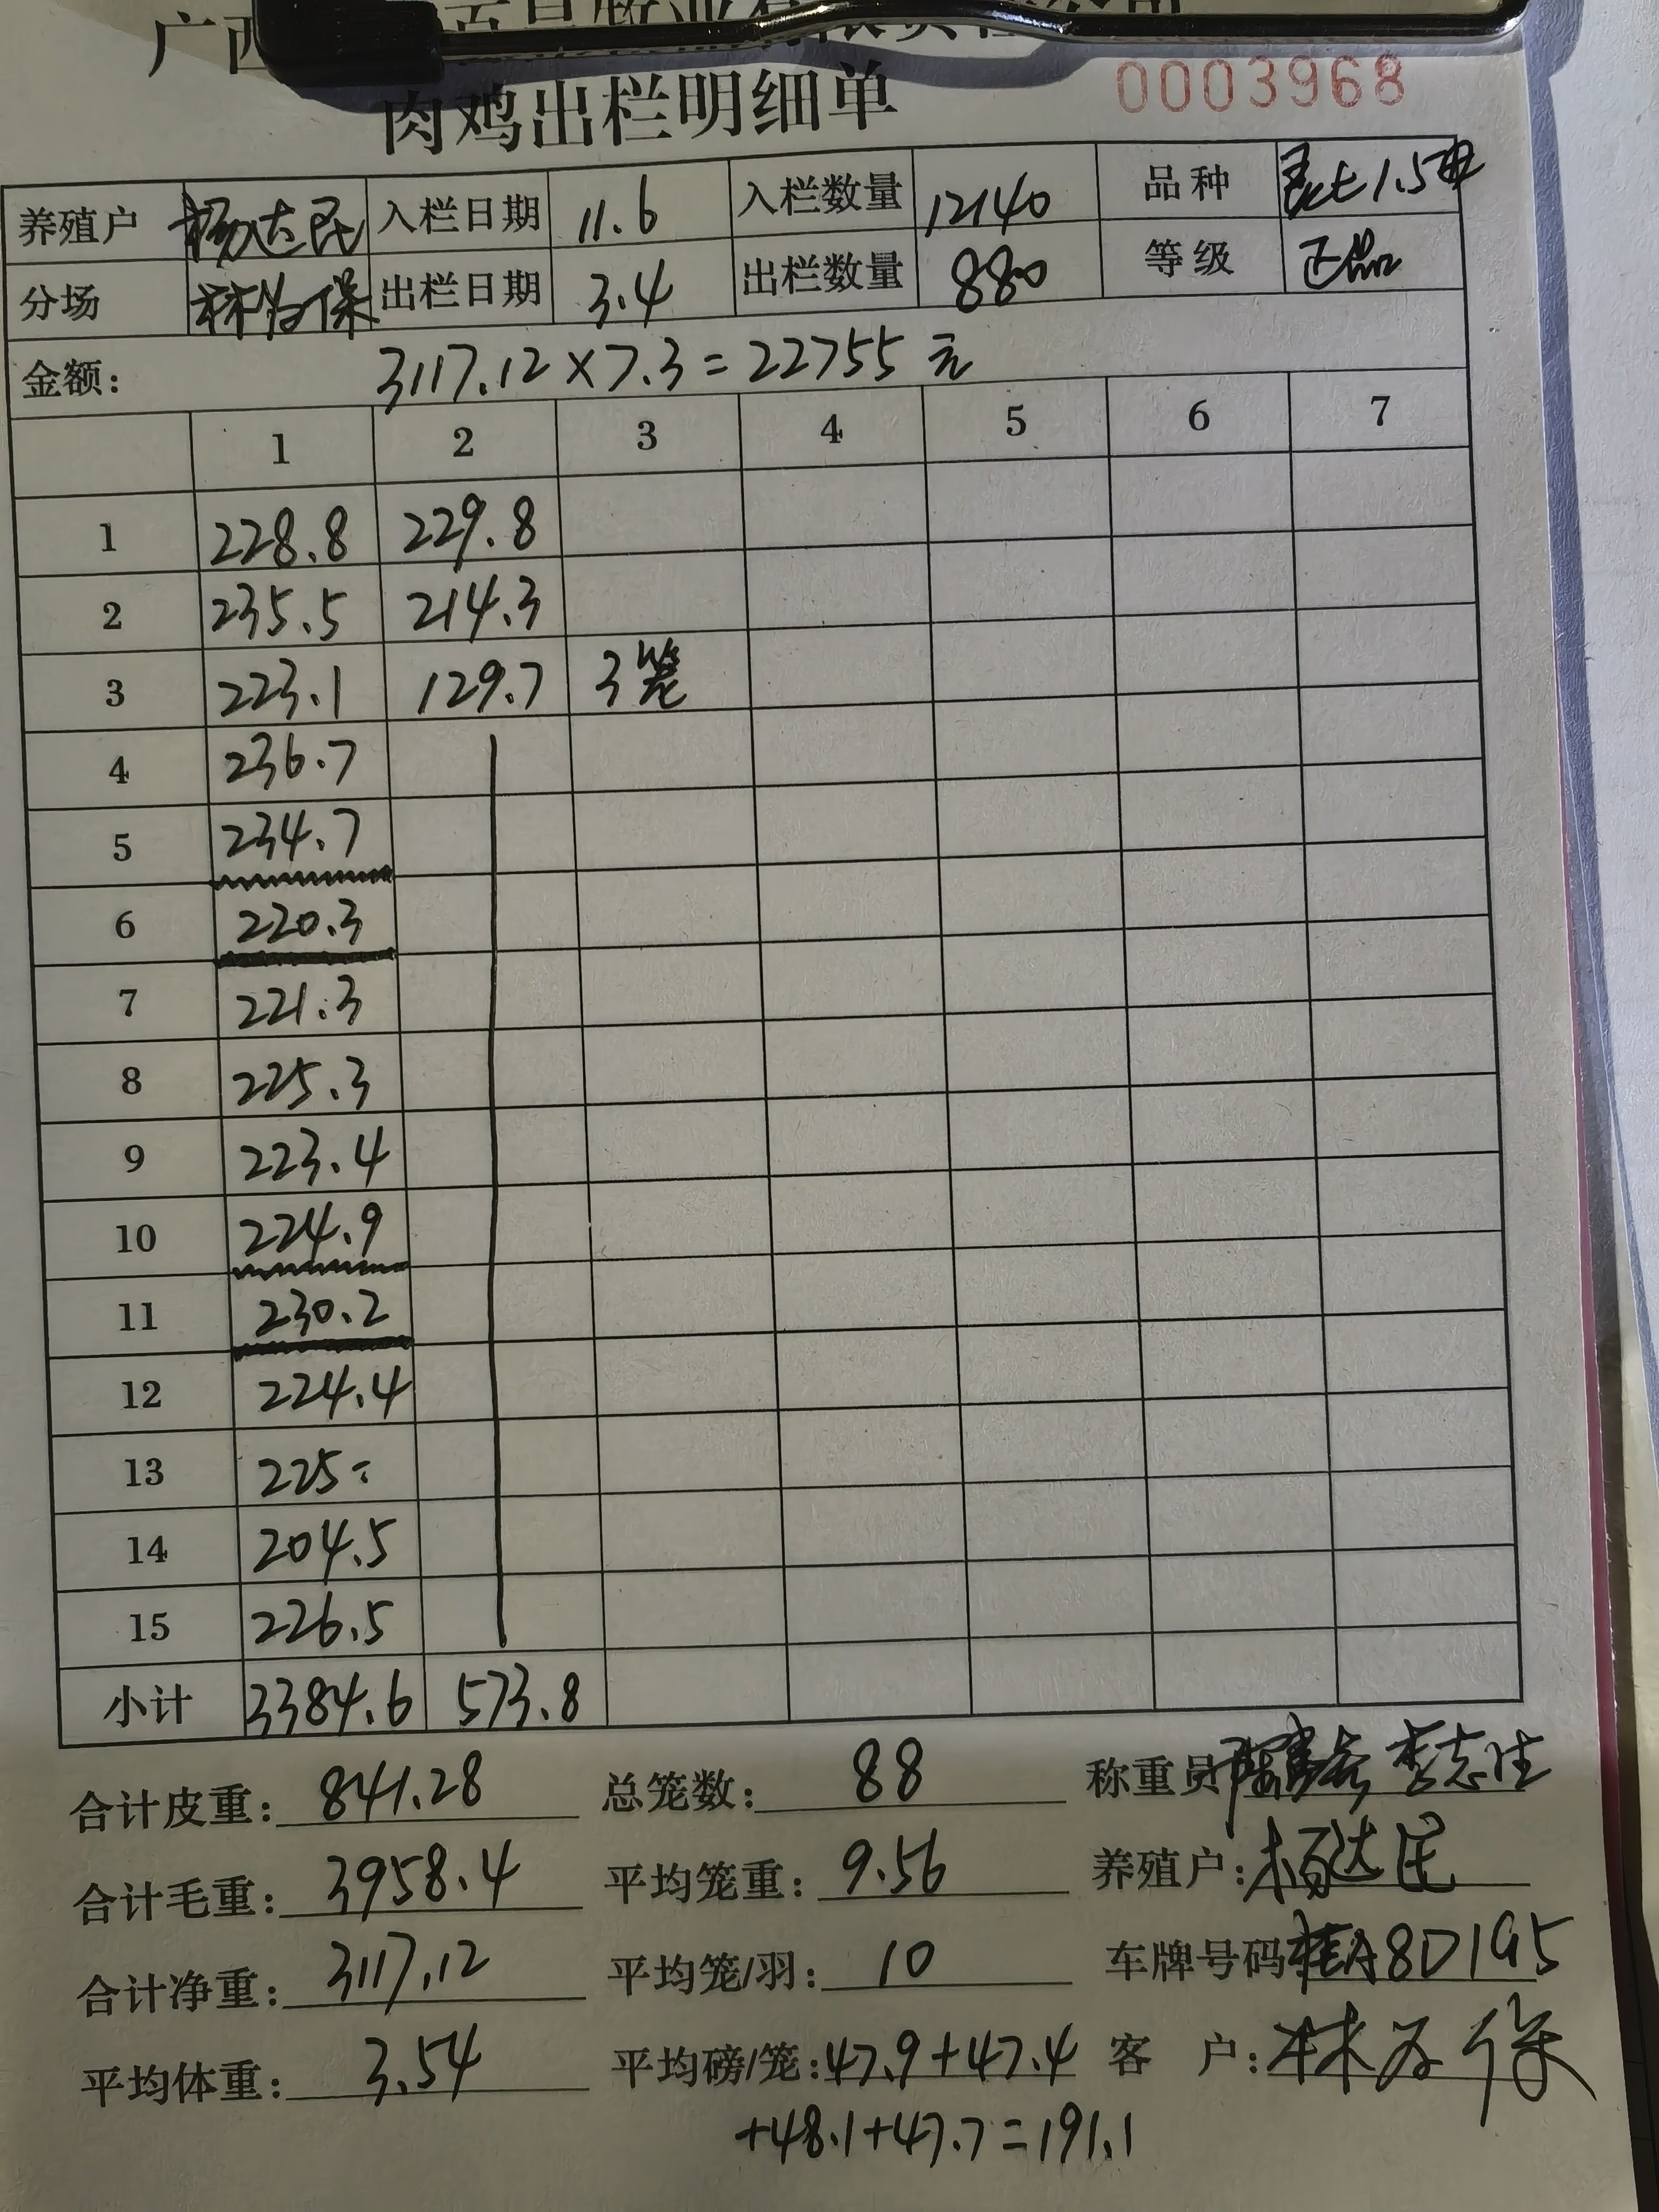 广西
肉鸡出栏明细单
0003968
养殖户 杨达民 入栏日期 11.6 入栏数量 12140 品种 1.5
分场 林为保 出栏日期 3.4 出栏数量 880 等级 正品
金额: 3117.12×7.3=22755元
1 2 3 4 5 6 7
1 228.8 229.8
2 235.5 214.3
3 223.1 129.7 3笼
4 236.7
5 234.7
6 220.3
7 221.3
8 225.3
9 223.4
10 224.9
11 230.2
12 224.4
13 225
14 204.5
15 226.5
小计 3384.6 573.8
合计皮重: 841.28 总笼数: 88 称重员 李志生
合计毛重: 3958.4 平均笼重: 9.56 养殖户: 杨达民
合计净重: 3117.12 平均笼/羽: 10 车牌号码 桂A8D195
平均体重: 3.54 平均磅/笼: 47.9+47.4 客户: 林为保
+48.1+47.7=191.1